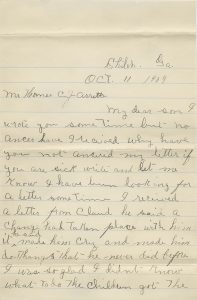 Shiloh, Ga
OCT. 11 1929
Mr Homer C Garrett
My dear son I
wrote you some time but no
ancer have I recived why have
you not ansured my letter if
you are sick write and let me
know I have been looking for
a letter some time I recived
a letter from Claud he said a
Chang had taken place with him
it made him Cry and made him
do things that he never did before
I was so glad I didnt know
what to do the Children got the